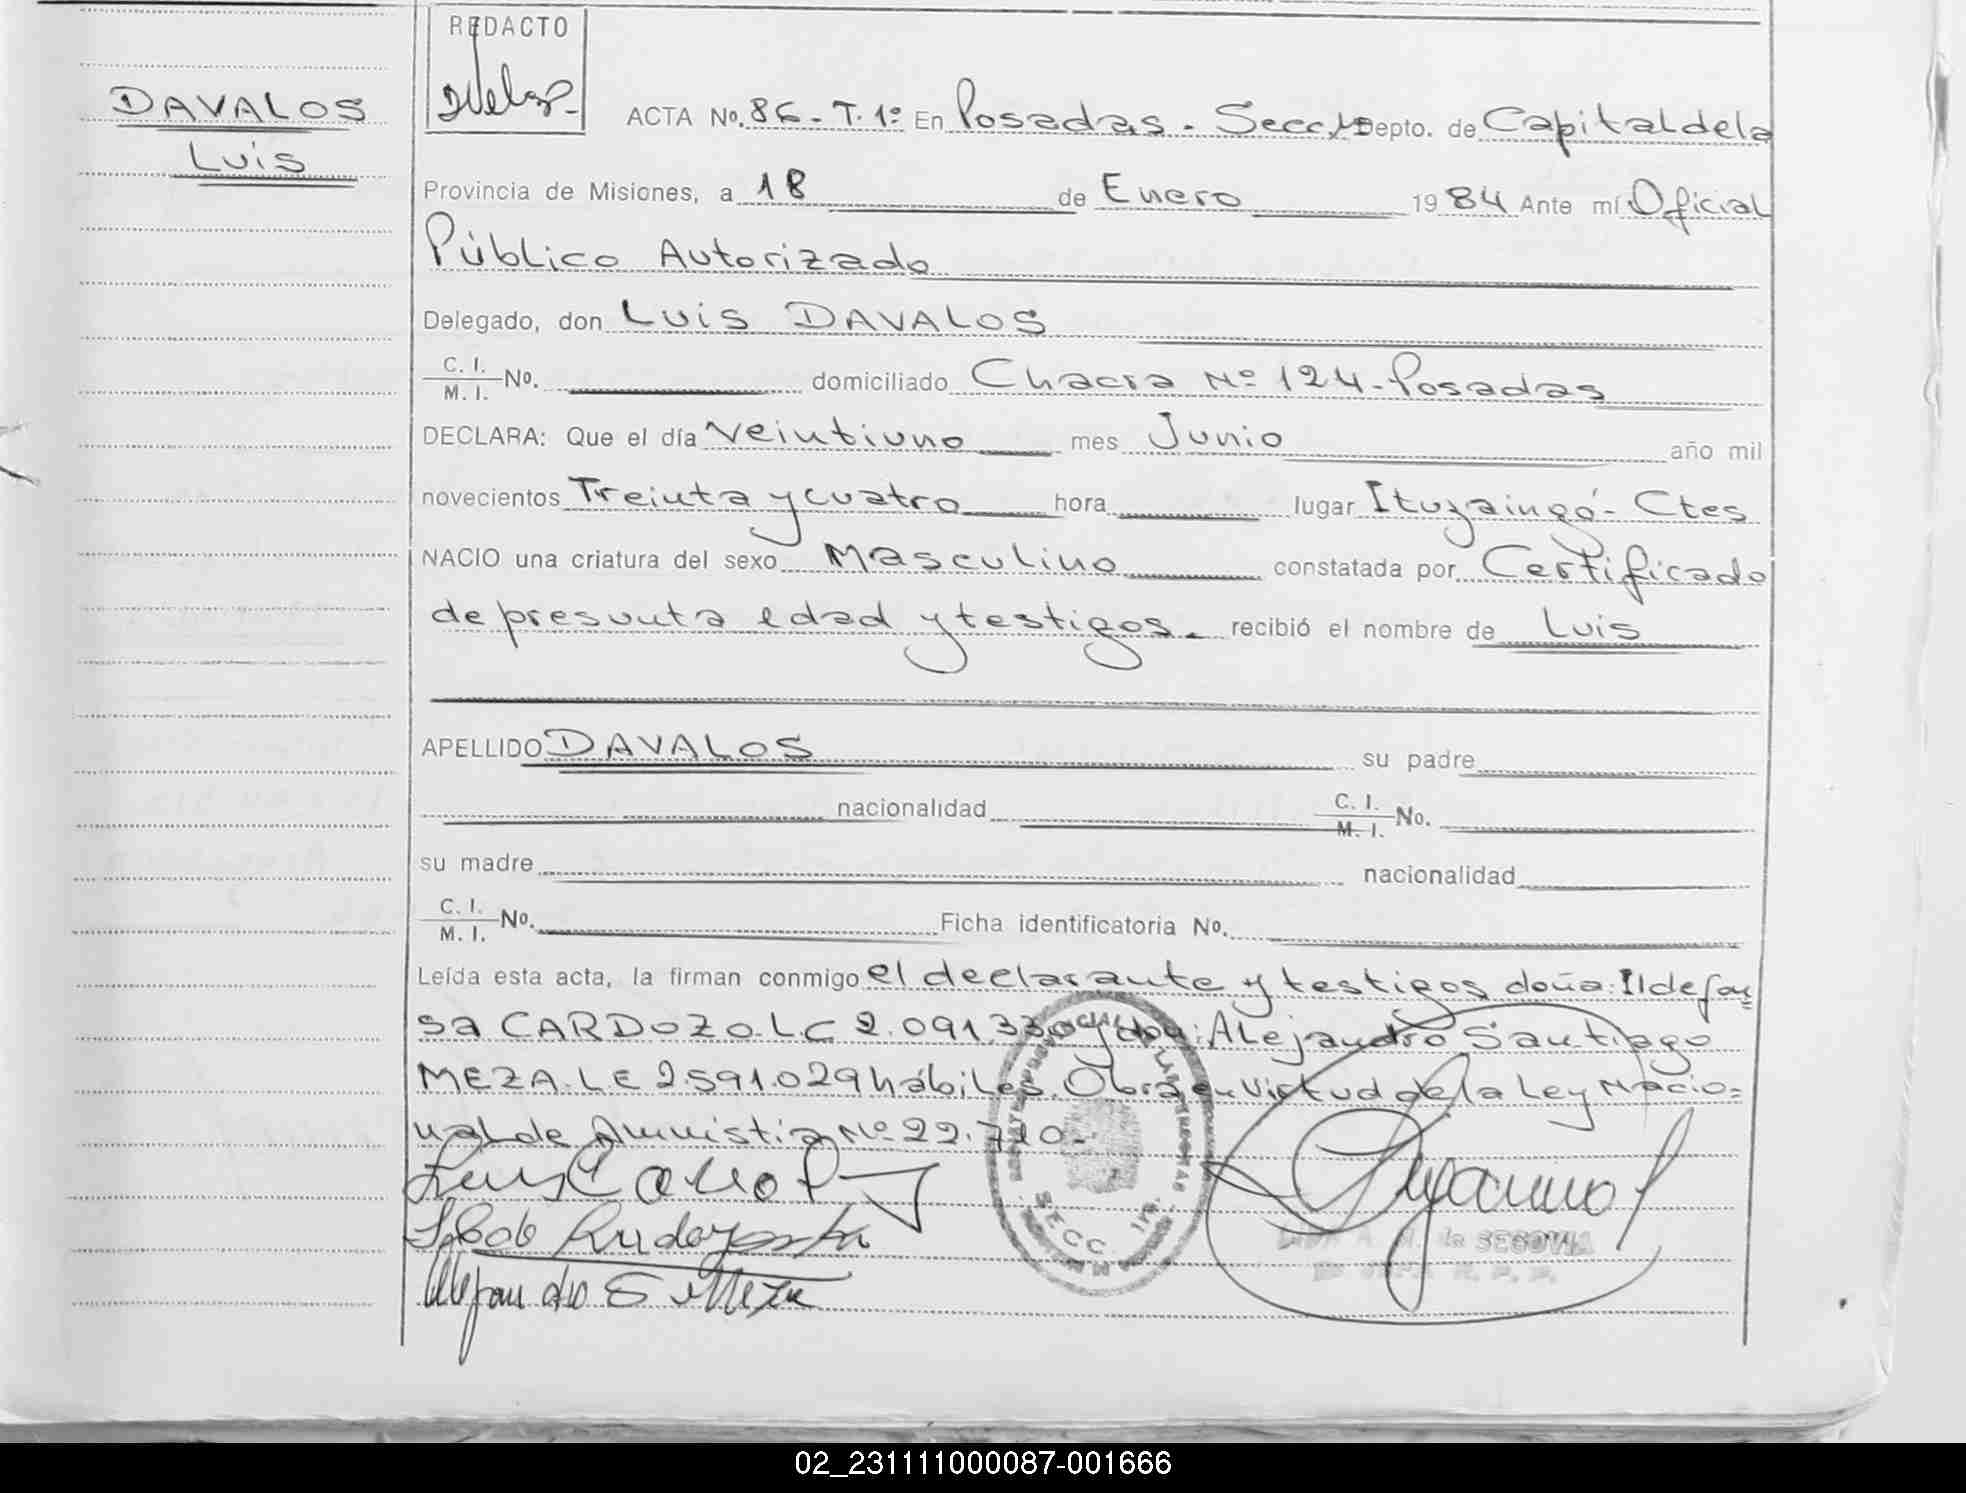 REDACTO
DAVALOS
Luis
ACTA No. 86 - T. 1º En Posadas - Secc 1º Depto. de Capital de la
Provincia de Misiones, a 18 de Enero 1984 Ante mí Oficial
Público Autorizado
Delegado, don Luis DAVALOS
C. I. / M. I. No. domiciliado Chacra Nº 124 - Posadas
DECLARA: Que el día Veintiuno mes Junio año mil
novecientos Treinta y cuatro hora lugar Ituzaingó - Ctes
NACIO una criatura del sexo Masculino constatada por Certificado
de presunta edad y testigos. recibió el nombre de Luis
APELLIDO DAVALOS su padre
nacionalidad C. I. / M. I. No.
su madre nacionalidad
C. I. / M. I. No. Ficha identificatoria No.
Leída esta acta, la firman conmigo el declarante y testigos doña: Ildefon=
sa CARDOZO. L.C 2.091.330 y don: Alejandro Santiago
MEZA. L E 2.591.029 hábiles. Obra en virtud de la Ley Nacio=
nal de Amnistia Nº 22.710.-
Alejandro S Meza
SECC. 1ra.
de SEGOVIA
02_231111000087-001666